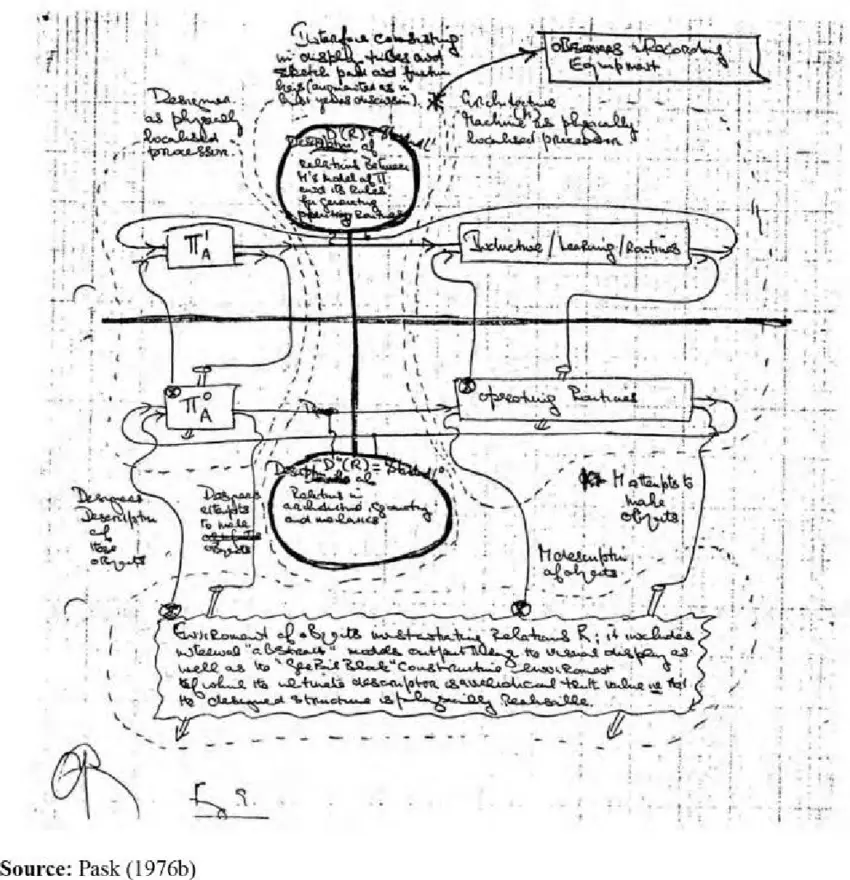 Interface consisting
in display tubes and
sketch pad and
(augmented as in
last years discussion).
Observers & Recording
Equipment
Designer
as physically
localised
processor.
Architecture
Machine as physically
localised processor
D'(R) =
Description of
Relations Between
M's model of Π
and its Rules
for Generating
Operating Routines
Π¹A
Inductive / Learning / Routines
Π⁰A
Operating Routines
D⁰(R) =
Relations in
architecture, geometry
and mechanics
Designers
Description
of
objects
Designers
attempts
to make
objects
M attempts to
make
objects
M description
of objects
Environment of objects instantiating Relations R; it includes
internal "abstract" models output along to visual display as
well as to "Construction environment
of which the ultimate descriptor is
the designed structure is physically Realisable.
Fig 9.
Source: Pask (1976b)